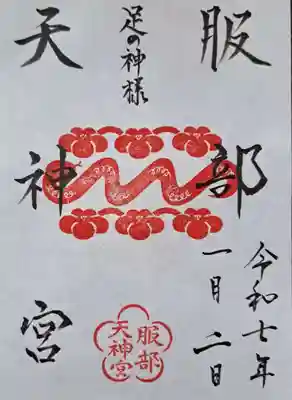 足の神様
服部
天神宮
令和七年
一月二日
服部
天神宮